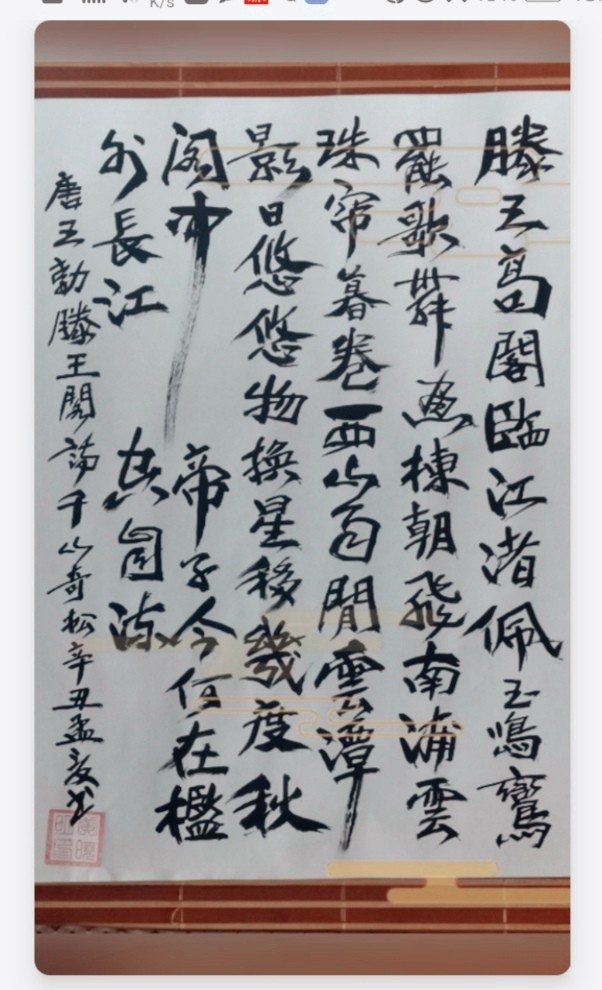 K/s
滕王高閣臨江渚佩玉鳴鸞
罷歌舞畫棟朝飛南浦雲
珠帘暮卷西山雨閒雲潭
影日悠悠物換星移幾度秋
阁中帝子今何在檻
外長江空自流
唐王勃滕王閣詩千山奇松辛丑孟夏书